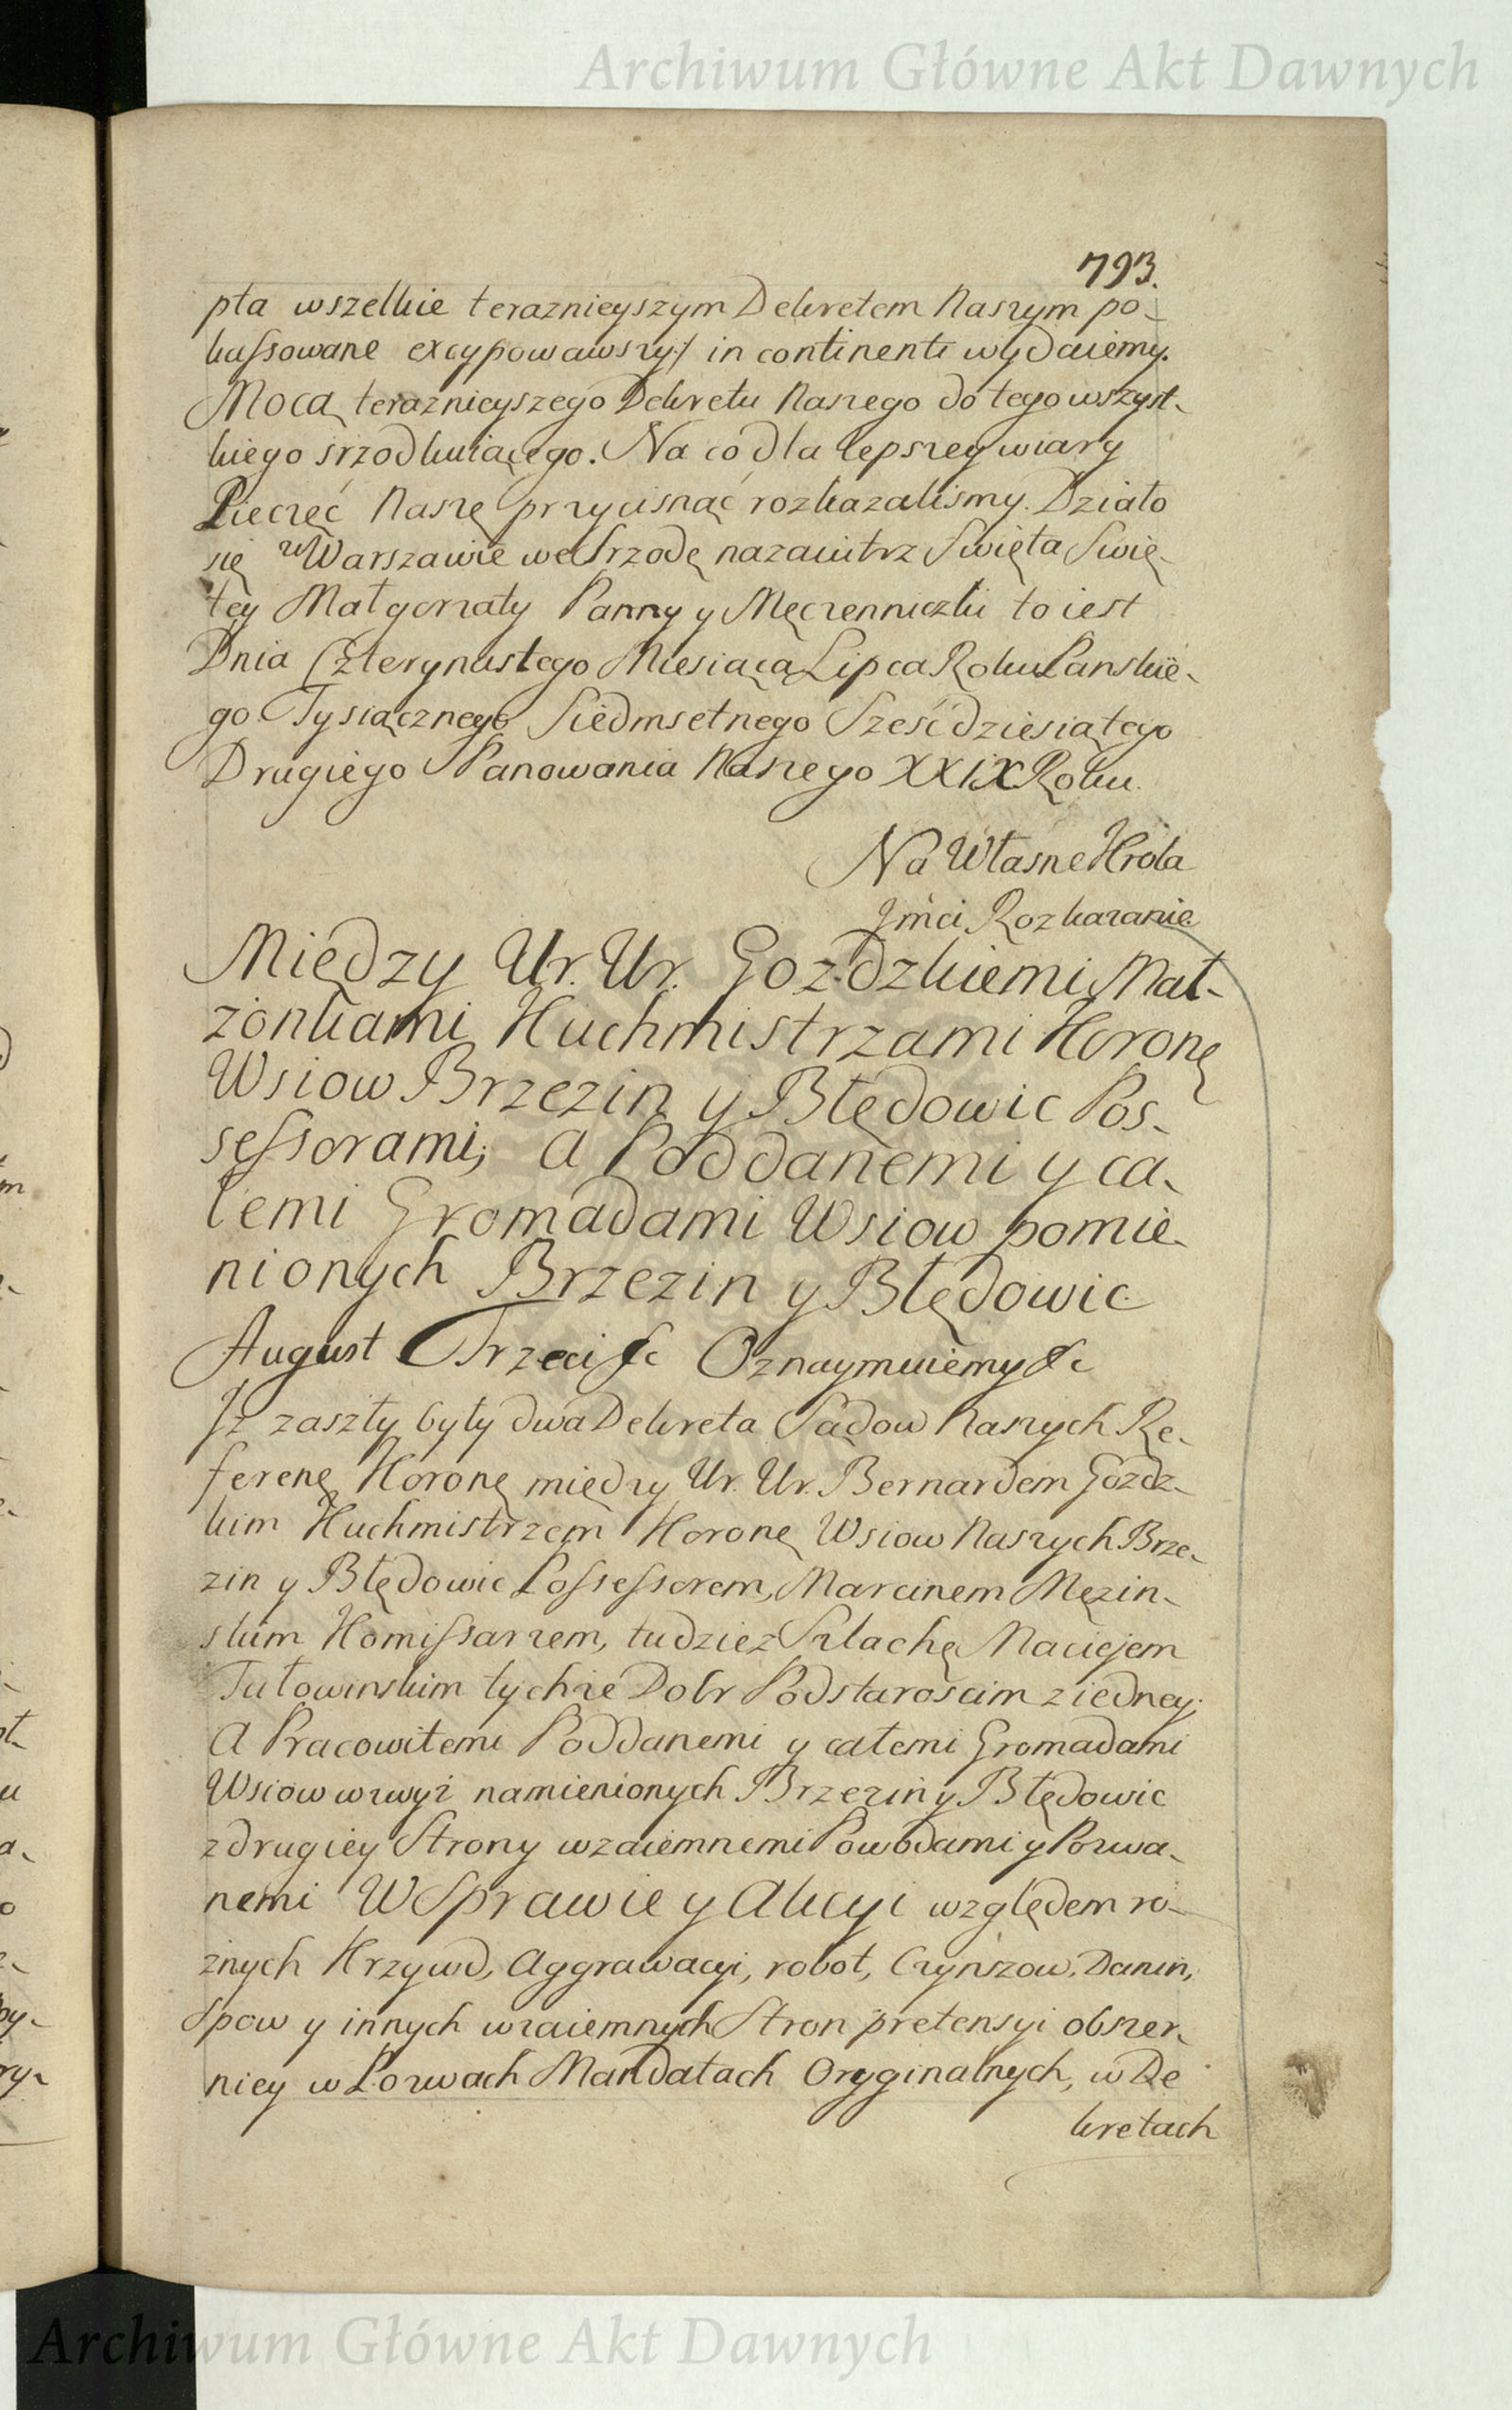 Archiwum Główne Akt Dawnych
793.
pta wszelkie teraznieyszym Dekretem Naszym po-
kassowane excypowawszy/ in continenti wydaiemy.
Mocą teraznieyszego Dekretu Naszego do tego wszyst-
kiego srzodkuiącego. Na co dla lepszey wiary
Pieczęć Naszę przycisnąć rozkazalismy. Działo
się w Warszawie we Srzodę nazaiutrz Swięta Swię-
tey Małgorzaty Panny y Męczenniczki to iest
Dnia Czterynastego Miesiąca Lipca Roku Panskie-
go Tysiącznego Siedmsetnego Sześćdziesiątego
Drugiego Panowania Naszego XXIX Roku.
Na Własne Krola
Jmći Rozkazanie
Między Ur. Ur. Gozdzkiemi Mał-
zonkami Kuchmistrzami Koronę
Wsiow Brzezin y Błędowic Pos-
sessorami; a Poddanemi y ca-
łemi Gromadami Wsiow pomie-
nionych Brzezin y Błędowic
August Trzeci &c Oznaymuiemy &c
Jż zaszły były dwa Dekreta Sądow Naszych Re-
ferenę Koronę między Ur. Ur. Bernardem Gozdz-
kim Kuchmistrzem Koronę Wsiow Naszych Brze-
zin y Błędowic Possessorem, Marcinem Męzin-
skim Komissarzem, tudziez Szlachę Maciejem
Tułowinskim tychże Dobr Podstaroscim z iedney;
A Pracowitemi Poddanemi y całemi Gromadami
Wsiow wzwyż namienionych Brzezin y Błędowic
z drugiey Strony wzaiemnemi Powodami y Pozwa-
nemi W Sprawie y Akcyi względem ro-
żnych Krzywd, Aggrawacyi, robot, Czynszow, Danin,
Spow y innych wzaiemnych Stron pretensyi obszer-
niey w Pozwach Mandatach Oryginalnych, w De
kretach
Archiwum Główne Akt Dawnych